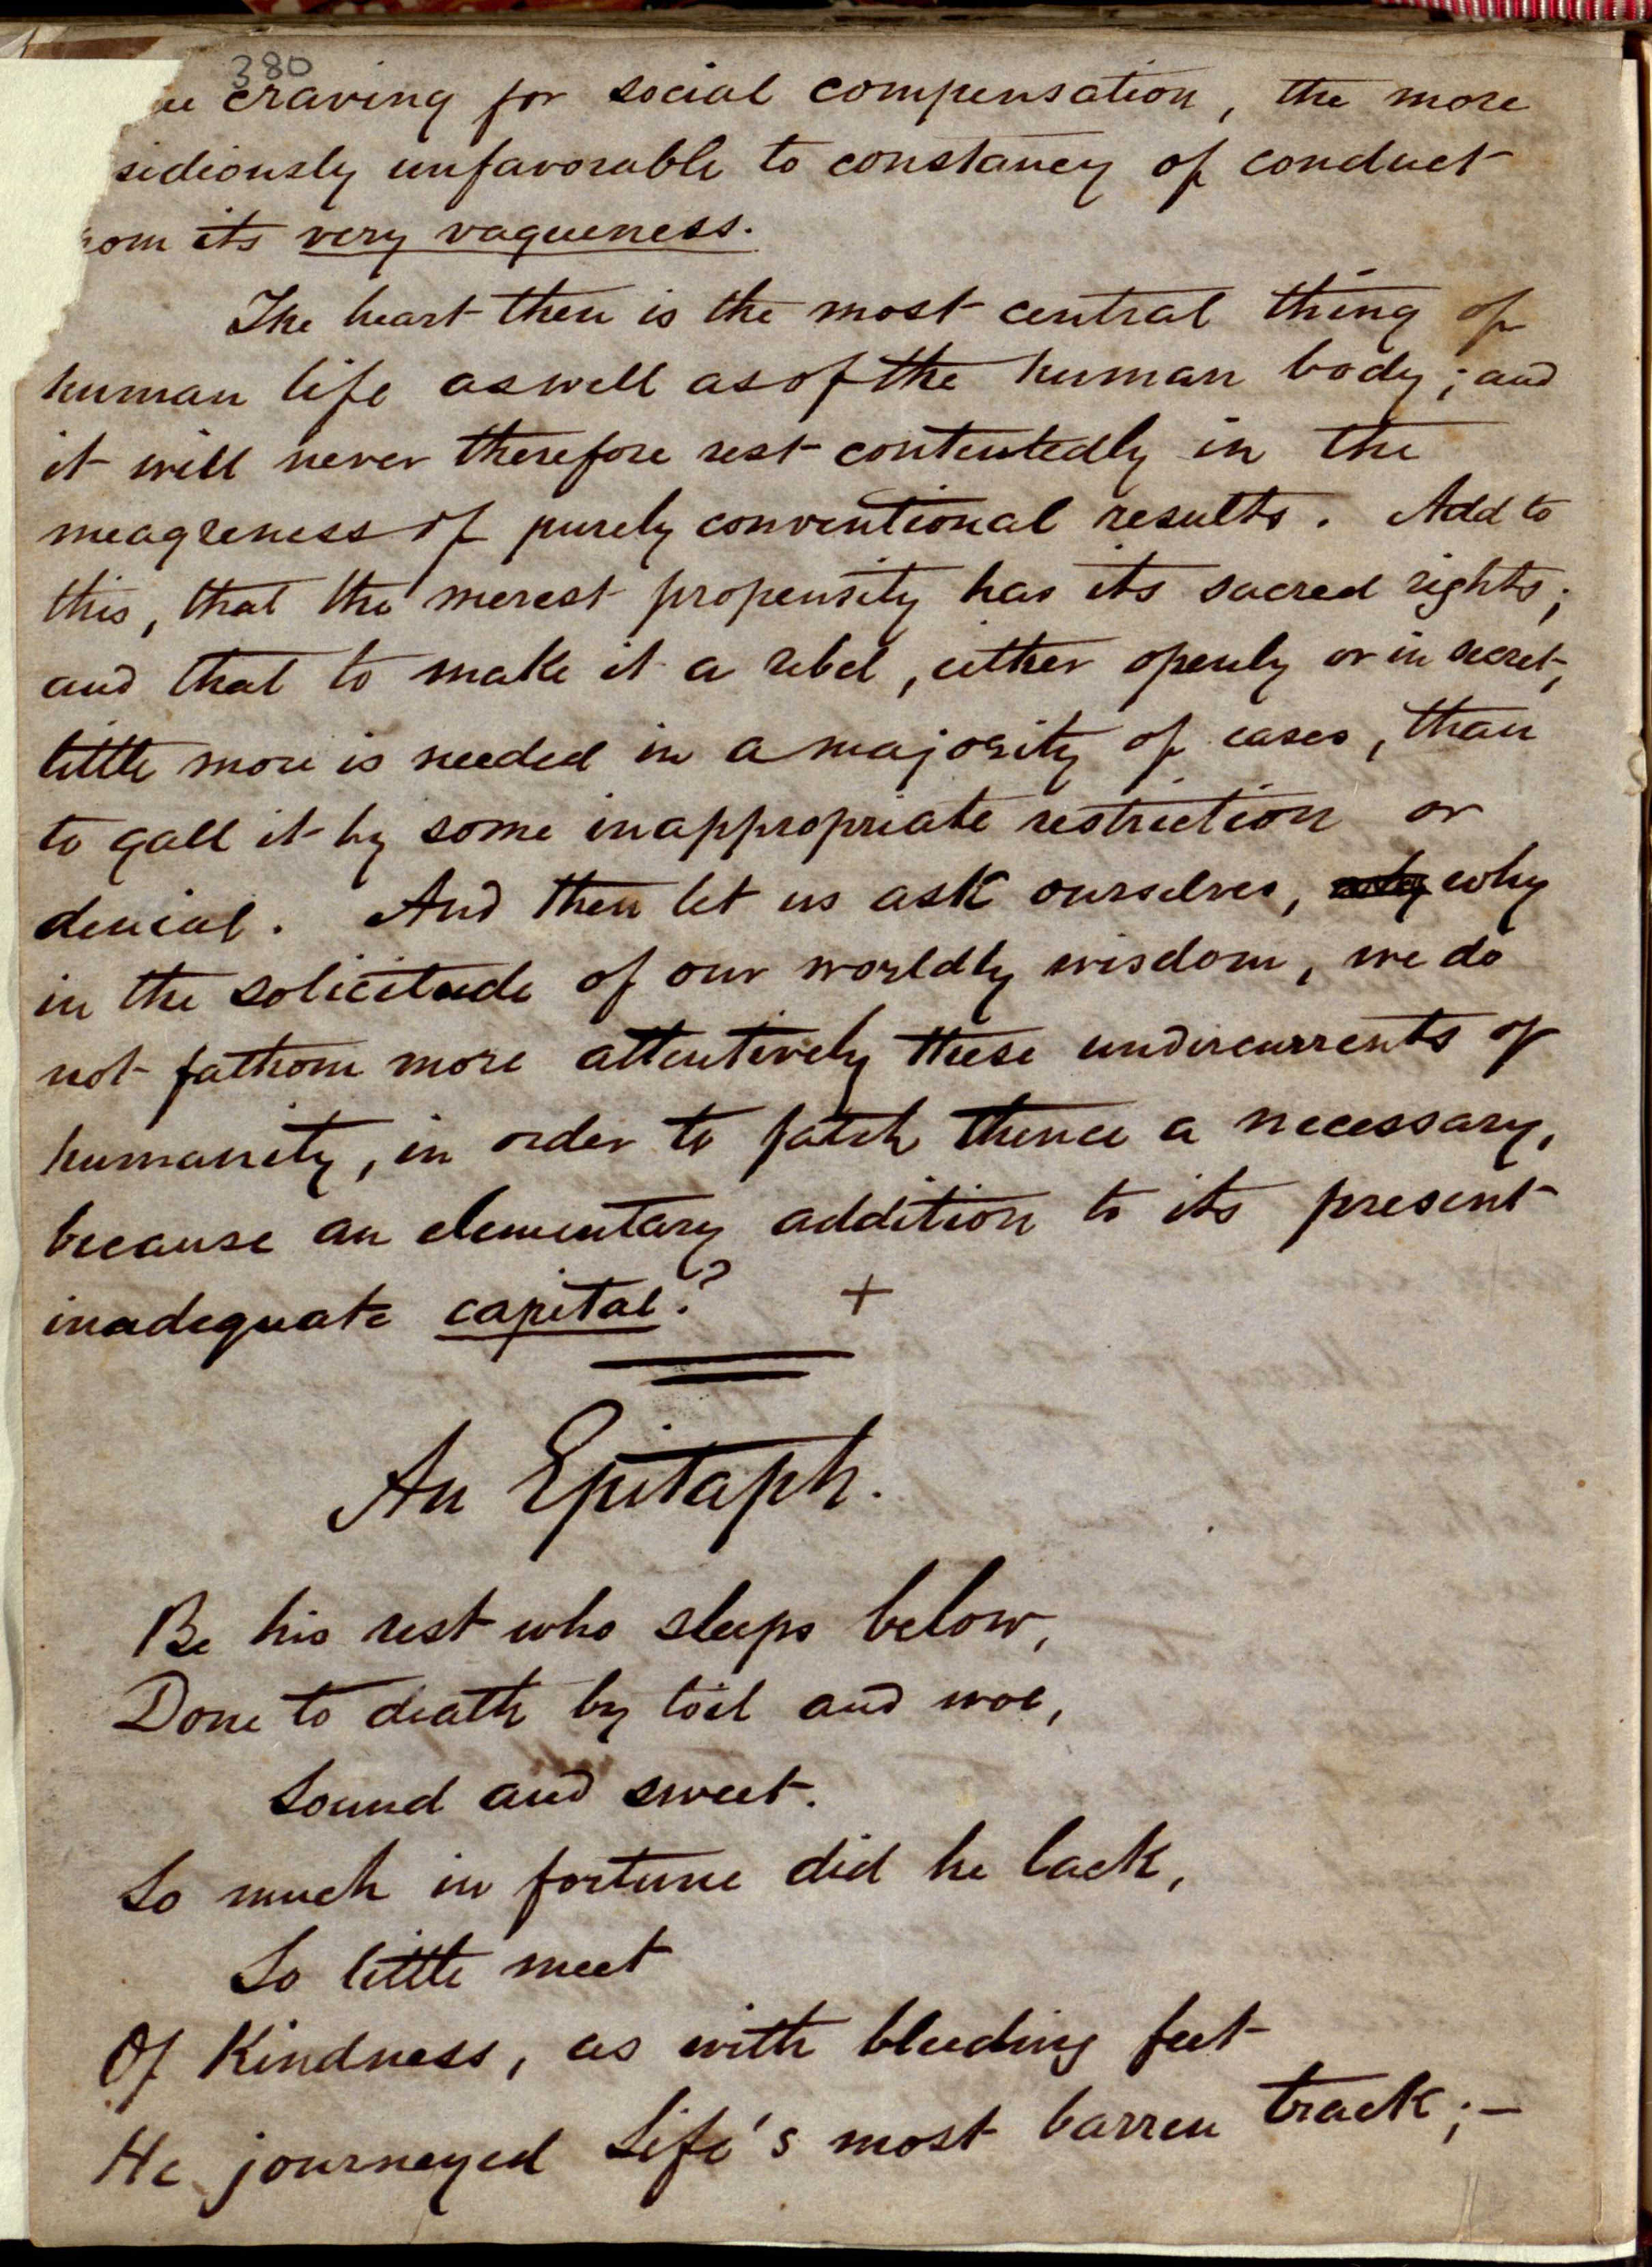 380
ue craving for social compensation, the more
sidiously unfavorable to constancy of conduct
rom its very vagueness.
The heart then is the most central thing of
human life as well as of the human body; and
it will never therefore rest contentedly in the
meagreness of purely conventional results. Add to
this, that the merest propensity has its sacred rights;
and that to make it a rebel, either openly or in secret,
little more is needed in a majority of cases, than
to gall it by some inappropriate restriction or
denial. And then let us ask ourselves, why
in the solicitude of our worldly wisdom, we do
not fathom more attentively these undercurrents of
humanity, in order to fatch thence a necessary,
because an elementary addition to its present
inadequate capital? +
An Epitaph.
Be his rest who sleeps below,
Done to death by toil and woe,
Sound and sweet.
So much in fortune did he lack,
So little meet
Of Kindness, as with bleeding feet
He journeyed Life's most barren track;—